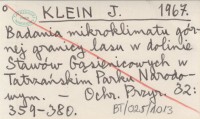 KLEIN J. 1967.
Badania mikroklimatu gór-
nej granicy lasu w dolinie
Stawów Gąsienicowych w
Tatrzańskim Parku Narodo-
wym. — Ochr. Przyr. 32:
359-380. BT/025/1013